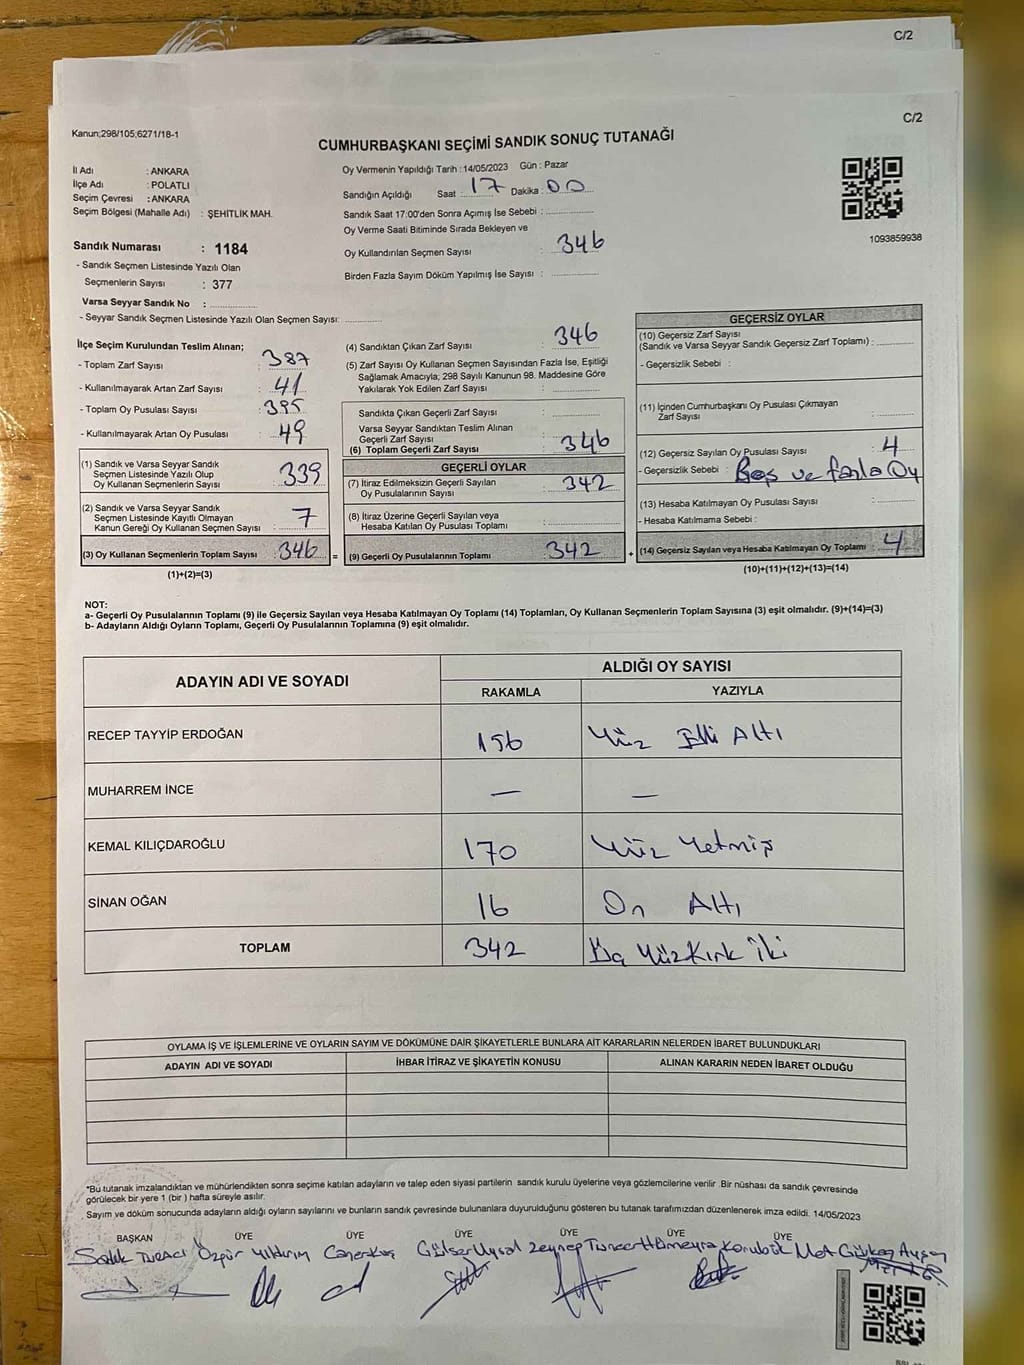 C/2
C/2
Kanun;298/105;6271/18-1
CUMHURBAŞKANI SEÇİMİ SANDIK SONUÇ TUTANAĞI
İl Adı : ANKARA
İlçe Adı : POLATLI
Seçim Çevresi : ANKARA
Seçim Bölgesi (Mahalle Adı) : ŞEHİTLİK MAH.
Oy Vermenin Yapıldığı Tarih : 14/05/2023 Gün : Pazar
Sandığın Açıldığı Saat : 17 Dakika : 00
Sandık Saat 17:00'den Sonra Açımış İse Sebebi :
Oy Verme Saati Bitiminde Sırada Bekleyen ve
Oy Kullandırılan Seçmen Sayısı 346
Birden Fazla Sayım Döküm Yapılmış İse Sayısı :
1093859938
Sandık Numarası : 1184
- Sandık Seçmen Listesinde Yazılı Olan
Seçmenlerin Sayısı : 377
Varsa Seyyar Sandık No :
- Seyyar Sandık Seçmen Listesinde Yazılı Olan Seçmen Sayısı:
İlçe Seçim Kurulundan Teslim Alınan;
- Toplam Zarf Sayısı : 387
- Kullanılmayarak Artan Zarf Sayısı : 41
- Toplam Oy Pusulası Sayısı : 395
- Kullanılmayarak Artan Oy Pusulası : 49
(1) Sandık ve Varsa Seyyar Sandık
Seçmen Listesinde Yazılı Olup
Oy Kullanan Seçmenlerin Sayısı 339
(2) Sandık ve Varsa Seyyar Sandık
Seçmen Listesinde Kayıtlı Olmayan
Kanun Gereği Oy Kullanan Seçmen Sayısı : 7
(3) Oy Kullanan Seçmenlerin Toplam Sayısı : 346 =
(1)+(2)=(3)
(4) Sandıktan Çıkan Zarf Sayısı : 346
(5) Zarf Sayısı Oy Kullanan Seçmen Sayısından Fazla İse, Eşitliği
Sağlamak Amacıyla; 298 Sayılı Kanunun 98. Maddesine Göre
Yakılarak Yok Edilen Zarf Sayısı :
Sandıkta Çıkan Geçerli Zarf Sayısı :
Varsa Seyyar Sandıktan Teslim Alınan
Geçerli Zarf Sayısı :
(6) Toplam Geçerli Zarf Sayısı : 346
GEÇERLİ OYLAR
(7) İtiraz Edilmeksizin Geçerli Sayılan
Oy Pusulalarının Sayısı : 342
(8) İtiraz Üzerine Geçerli Sayılan veya
Hesaba Katılan Oy Pusulası Toplamı :
(9) Geçerli Oy Pusulalarının Toplamı : 342 +
GEÇERSİZ OYLAR
(10) Geçersiz Zarf Sayısı
(Sandık ve Varsa Seyyar Sandık Geçersiz Zarf Toplamı) :
- Geçersizlik Sebebi :
(11) İçinden Cumhurbaşkanı Oy Pusulası Çıkmayan
Zarf Sayısı :
(12) Geçersiz Sayılan Oy Pusulası Sayısı : 4
- Geçersizlik Sebebi : Boş ve fazla Oy
(13) Hesaba Katılmayan Oy Pusulası Sayısı :
- Hesaba Katılmama Sebebi :
(14) Geçersiz Sayılan veya Hesaba Katılmayan Oy Toplamı : 4
(10)+(11)+(12)+(13)=(14)
NOT:
a- Geçerli Oy Pusulalarının Toplamı (9) ile Geçersiz Sayılan veya Hesaba Katılmayan Oy Toplamı (14) Toplamları, Oy Kullanan Seçmenlerin Toplam Sayısına (3) eşit olmalıdır. (9)+(14)=(3)
b- Adayların Aldığı Oyların Toplamı, Geçerli Oy Pusulalarının Toplamına (9) eşit olmalıdır.
ADAYIN ADI VE SOYADI ALDIĞI OY SAYISI
RAKAMLA YAZIYLA
RECEP TAYYİP ERDOĞAN 156 Yüz Elli Altı
MUHARREM İNCE — —
KEMAL KILIÇDAROĞLU 170 Yüz Yetmiş
SİNAN OĞAN 16 On Altı
TOPLAM 342 Üç Yüz Kırk İki
OYLAMA İŞ VE İŞLEMLERİNE VE OYLARIN SAYIM VE DÖKÜMÜNE DAİR ŞİKAYETLERLE BUNLARA AİT KARARLARIN NELERDEN İBARET BULUNDUKLARI
ADAYIN ADI VE SOYADI İHBAR İTİRAZ VE ŞİKAYETİN KONUSU ALINAN KARARIN NEDEN İBARET OLDUĞU
*Bu tutanak imzalandıktan ve mühürlendikten sonra seçime katılan adayların ve talep eden siyasi partilerin sandık kurulu üyelerine veya gözlemcilerine verilir. Bir nüshası da sandık çevresinde
görülecek bir yere 1 (bir) hafta süreyle asılır.
Sayım ve döküm sonucunda adayların aldığı oyların sayılarını ve bunların sandık çevresinde bulunanlara duyurulduğunu gösteren bu tutanak tarafımızdan düzenlenerek imza edildi. 14/05/2023
BAŞKAN ÜYE ÜYE ÜYE ÜYE ÜYE ÜYE
Sadık TURACI Özgür Yıldırım Caner Gülser Uysal Zeynep Tuncer Hümeyra Korubük